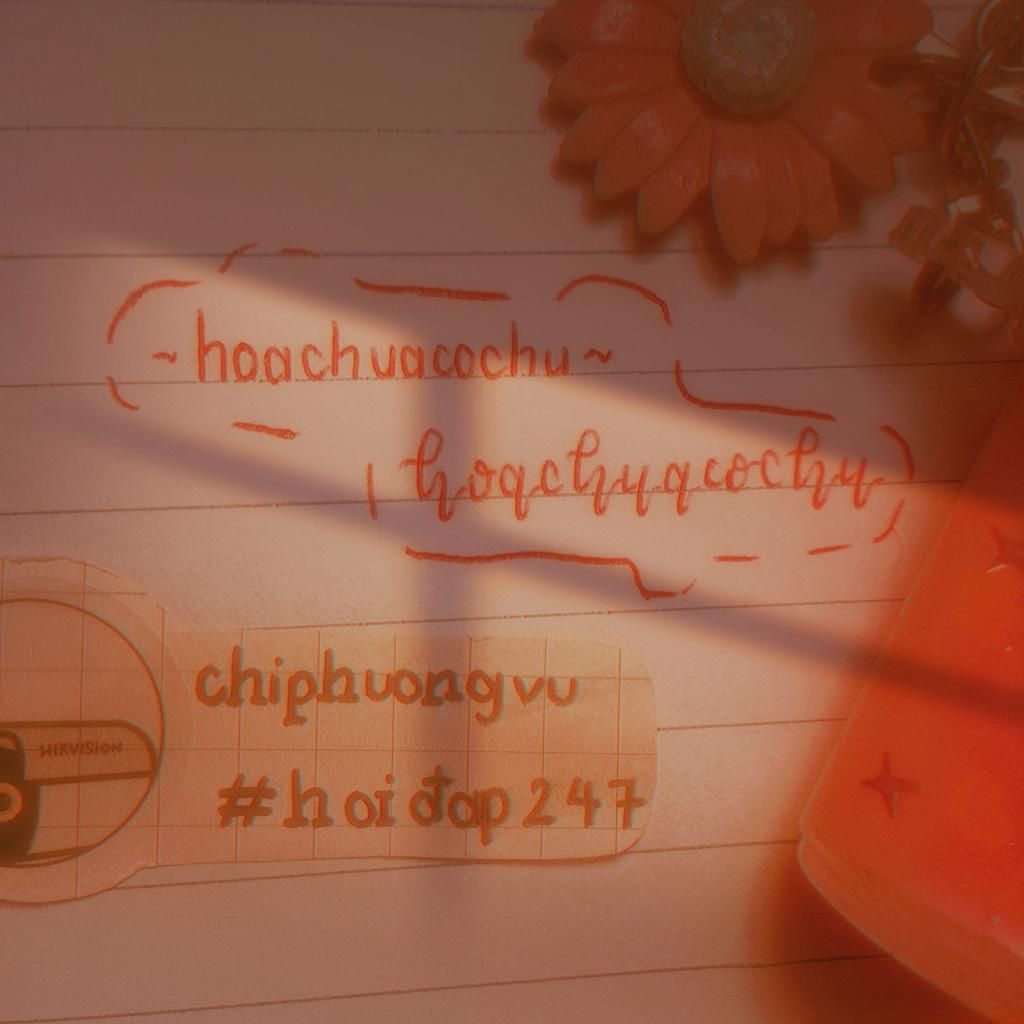 ~hoachuacochu~
hoachuacochu
chiphuongvu
HIKVISION
#hoiđap247